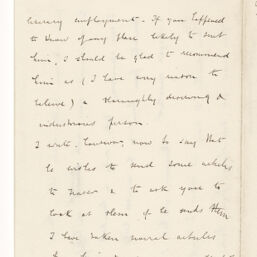 literary employment. If you happened
to know of any place likely to suit
him, I should be glad to recommend
him as (I have every reason to
believe) a thoroughly deserving &
industrious person.
I write, however, now to say that
he wishes to send some articles
to Fraser & to ask you to
look at them if he sends them
I have taken several articles